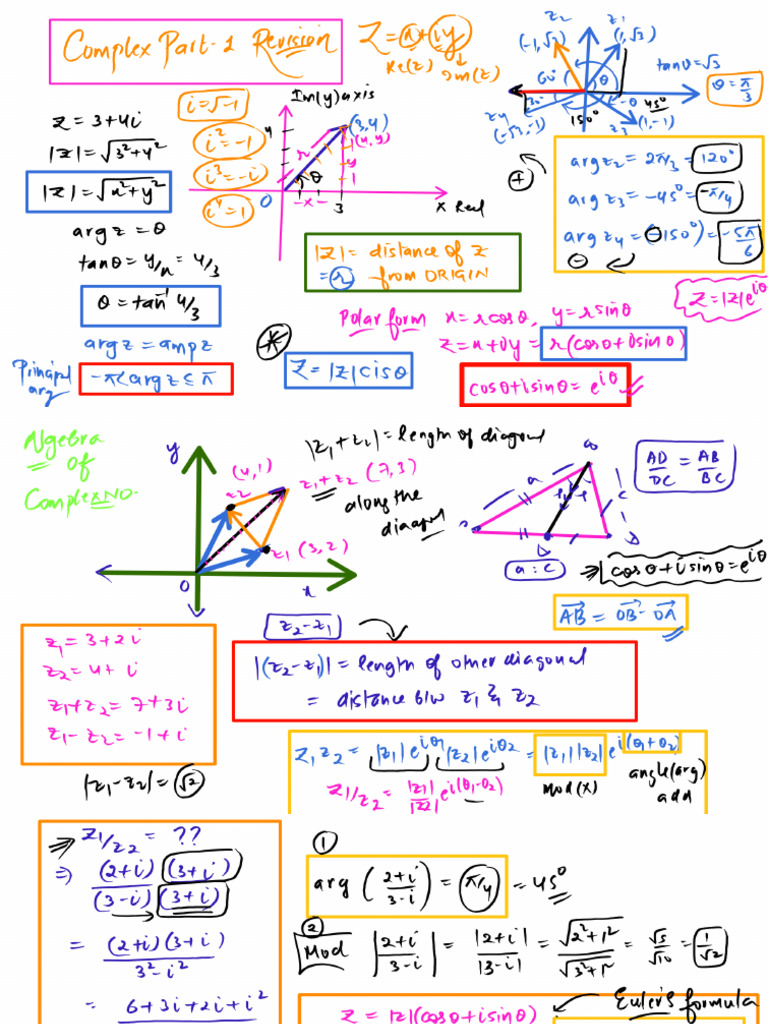 Complex Part-1 Revision
Z = x + iy
Re(z) Im(z)
z = 3+4i
|z| = √3²+4²
|z| = √x²+y²
arg z = θ
tanθ = y/x = 4/3
θ = tan⁻¹ 4/3
arg z = amp z
Principal arg
-π < arg z ≤ π
i = √-1
i² = -1
i³ = -i
i⁴ = 1
Im(y) axis
(3,4)
(x,y)
4
r
y
θ
O
-x-
3
X Real
|z| = distance of z
= r from ORIGIN
z₂
(-1,√3)
z₁
(1,√3)
tanθ = √3
θ = π/3
60°
θ
45°
z₄
(-√3,-1)
150°
z₃
(1,-1)
arg z₂ = 2π/3 = 120°
arg z₃ = -45° = -π/4
arg z₄ = (-150°) = -5π/6
Z = |z|e^iθ
Polar form x = rcosθ, y = rsinθ
z = x+iy = r(cosθ+isinθ)
Z = |z| cisθ
cosθ+isinθ = e^iθ
Algebra
of
Complex NO.
y
(4,1)
z₂
z₁+z₂ (7,3)
z₁ (3,2)
O
x
|z₁+z₂| = length of diagonal
along the
diagonal
AD/DC = AB/BC
a
c
D
a : c
cosθ+isinθ = e^iθ
AB = OB - OA
z₁ = 3+2i
z₂ = 4+i
z₁+z₂ = 7+3i
z₁-z₂ = -1+i
|z₁-z₂| = √2
z₂-z₁
|(z₂-z₁)| = length of other diagonal
= distance b/w z₁ & z₂
z₁z₂ = |z₁|e^iθ₁ |z₂|e^iθ₂ = |z₁||z₂|e^i(θ₁+θ₂)
z₁/z₂ = |z₁|/|z₂| e^i(θ₁-θ₂)
mod(x)
angle(arg)
add
z₁/z₂ = ??
⇒ (2+i)(3+i)/(3-i)(3+i)
= (2+i)(3+i)/3²-i²
= 6+3i+2i+i²
1
arg (2+i/3-i) = π/4 = 45°
2
Mod |2+i/3-i| = |2+i|/|3-i| = √2²+1²/√3²+1² = √5/√10 = 1/√2
Euler's formula
Z = |z|(cosθ+isinθ)